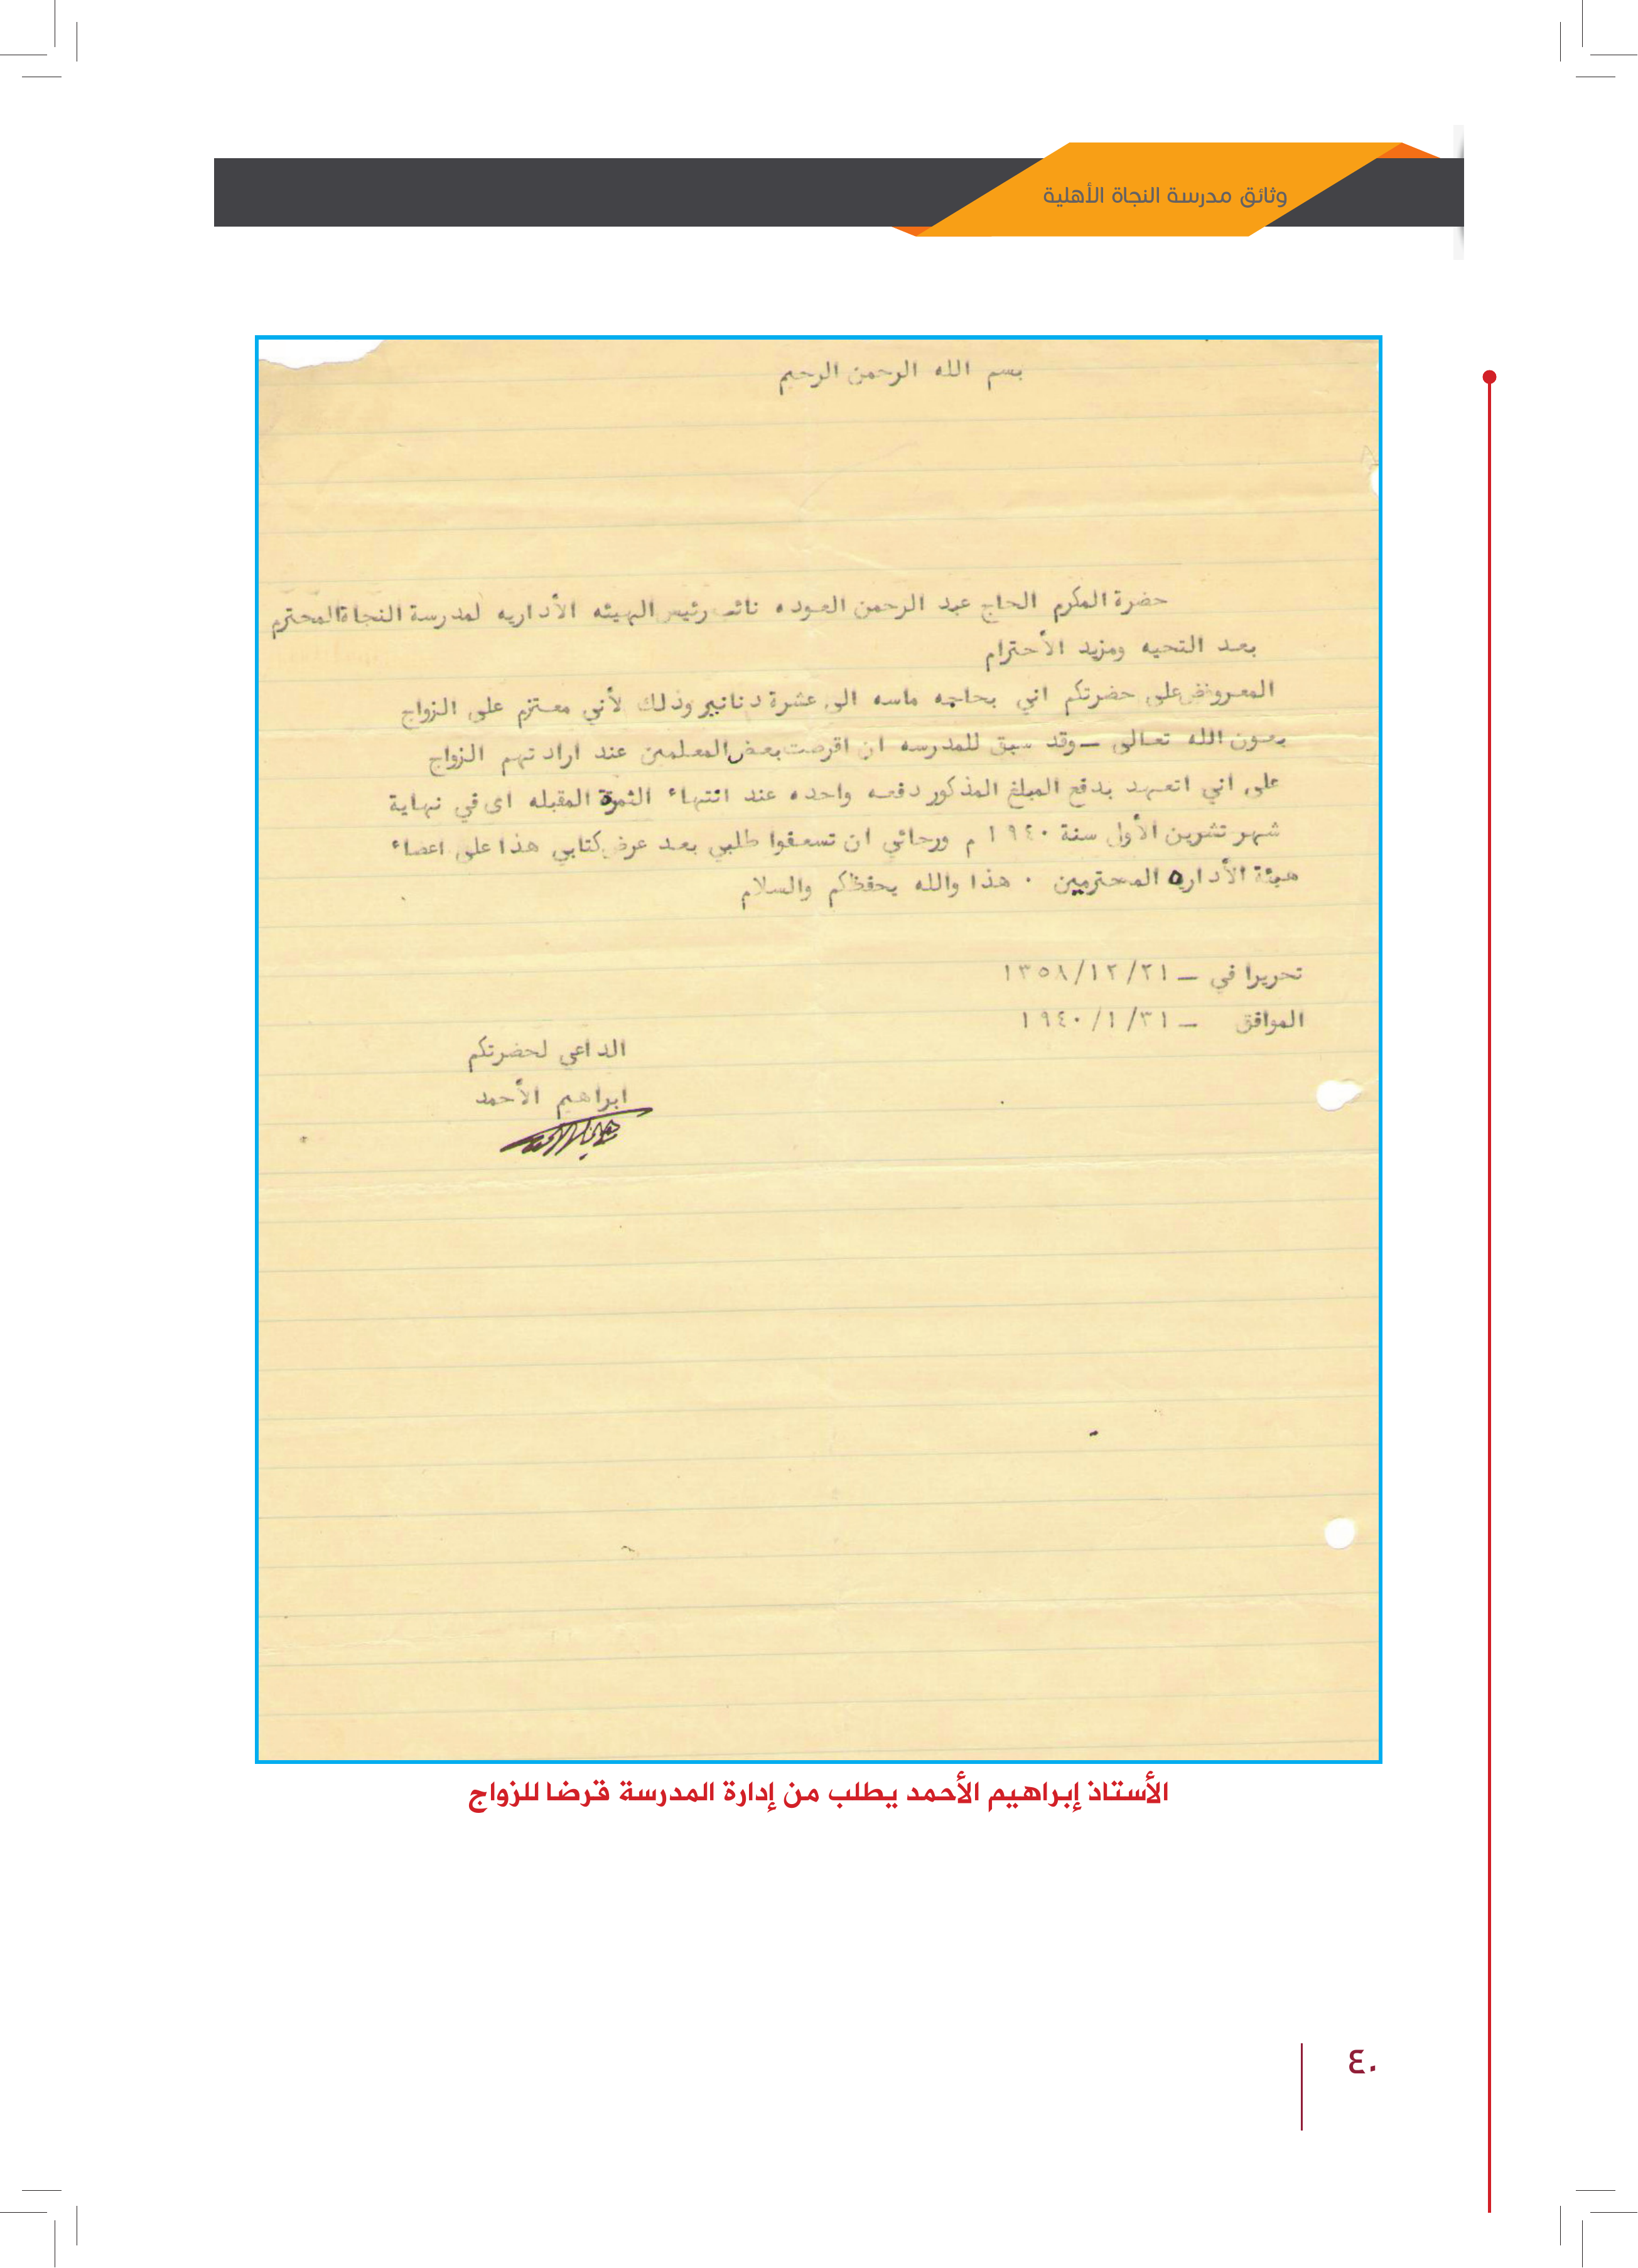 وثائق مدرسة النجاة الأهلية
بسم الله الرحمن الرحيم
حضرة المكرم الحاج عبد الرحمن العوده نائب رئيس الهيئه الأداريه لمدرسة النجاة المحترم
بعد التحيه ومزيد الأحترام
المعروض على حضرتكم اني بحاجه ماسه الى عشرة دنانير وذلك لأني معتزم على الزواج
بعون الله تعالى – وقد سبق للمدرسه ان اقرضت بعض المعلمين عند ارادتهم الزواج
على اني اتعهد بدفع المبلغ المذكور دفعه واحده عند انتهاء الثمرة المقبله اى في نهاية
شهر تشرين الأول سنة ١٩٤٠ م ورجائي ان تسعفوا طلبي بعد عرض كتابي هذا على اعضاء
هيئة الأداره المحترمين . هذا والله يحفظكم والسلام
تحريرا في – ١٣٥٨/١٢/٢١
الموافق – ١٩٤٠/١/٣١
الداعي لحضرتكم
ابراهيم الأحمد
الأستاذ إبراهيم الأحمد يطلب من إدارة المدرسة قرضا للزواج
٤٠